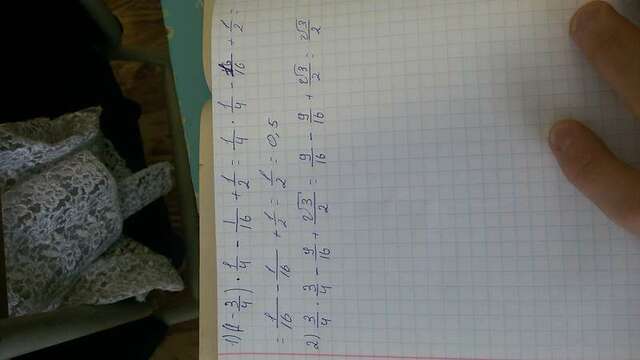 1) (1 - 3/4) · 1/4 - 1/16 + 1/2 = 1/4 · 1/4 - 1/16 + 1/2 =
= 1/16 - 1/16 + 1/2 = 1/2 = 0,5
2) 3/4 · 3/4 - 9/16 + √3/2 = 9/16 - 9/16 + √3/2 = √3/2